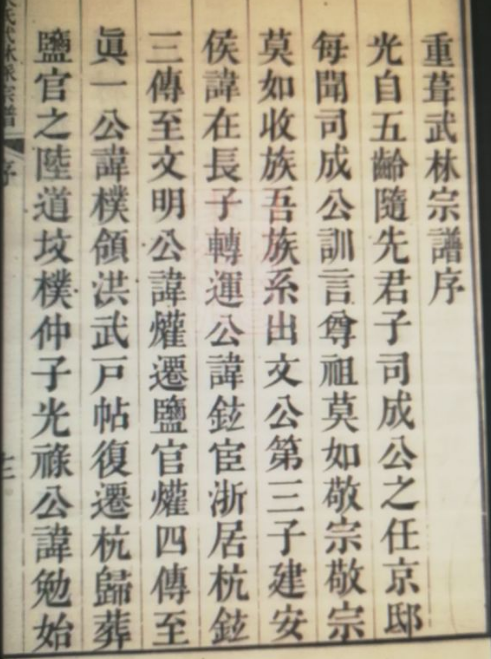 重葺武林宗譜序
光自五齡隨先君子司成公之任京邸
每聞司成公訓言尊祖莫如敬宗敬宗
莫如收族吾族系出文公第三子建安
侯諱在長子轉運公諱鉉宦浙居杭鉉
三傳至文明公諱爟遷鹽官爟四傳至
眞一公諱樸領洪武戸帖復遷杭歸葬
鹽官之陸道坟樸仲子光祿公諱勉始
氏武林派宗譜
序